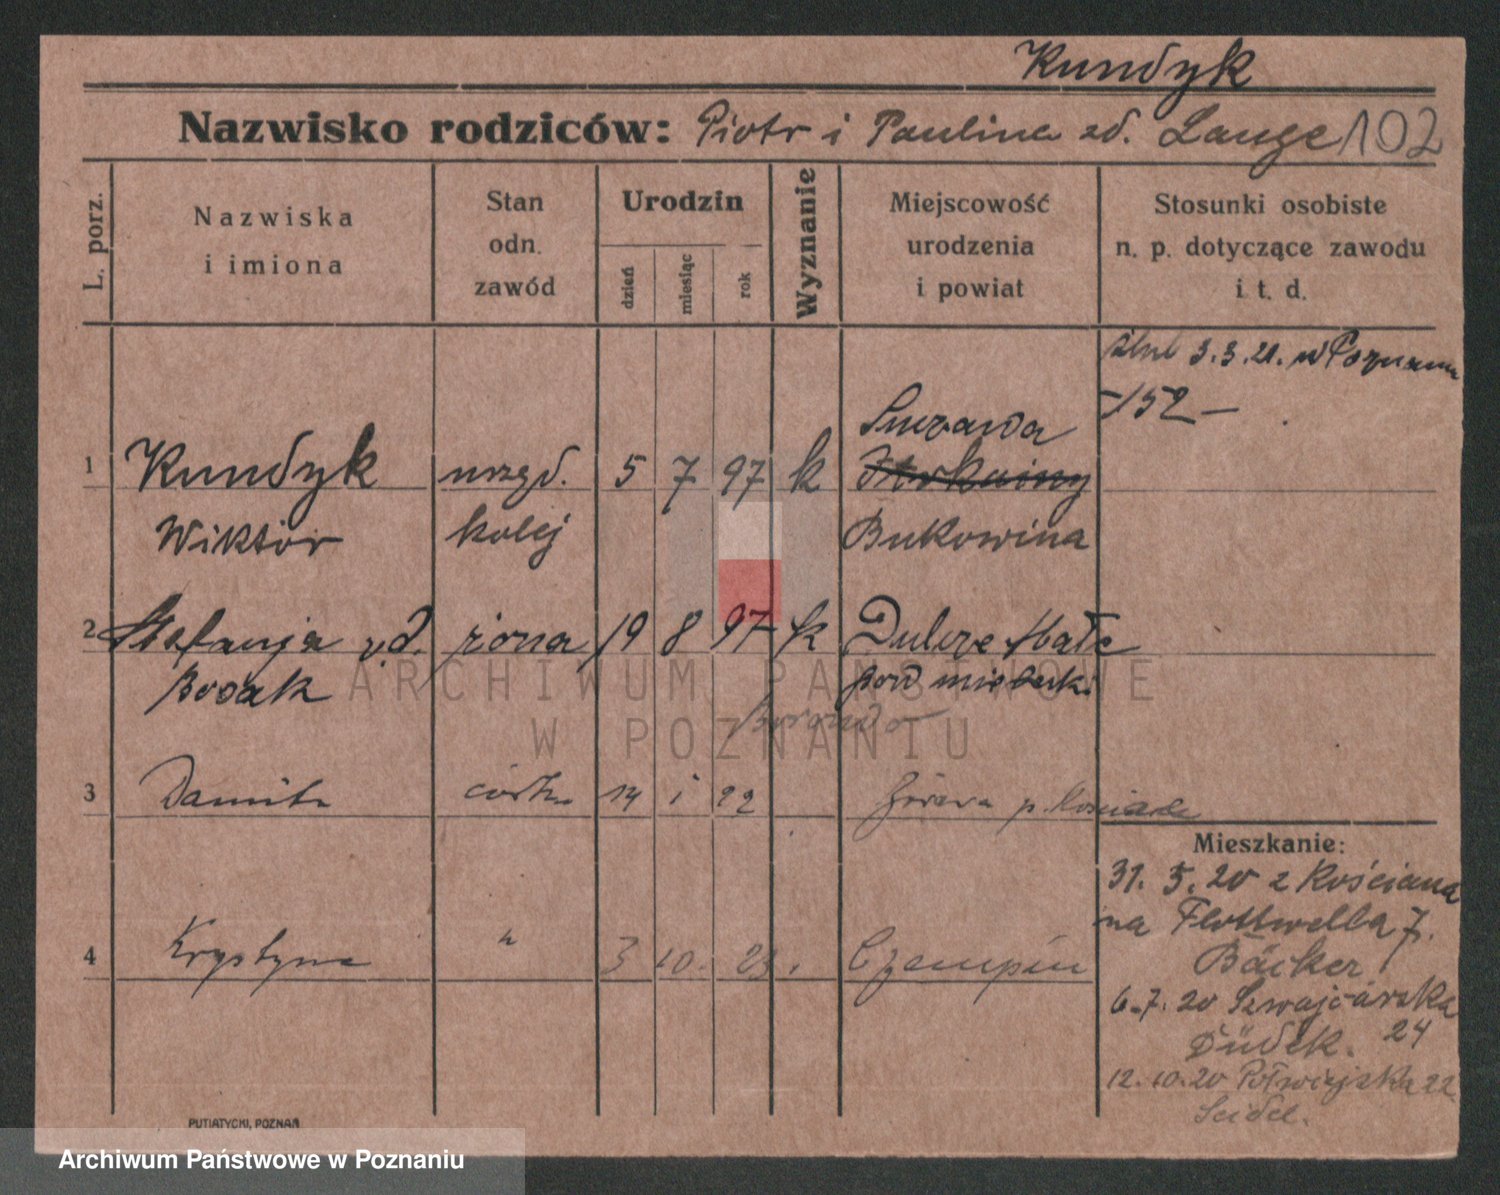 Kundyk
Nazwisko rodziców: Piotr i Paulina zd. Lange 102
L. porz.
Nazwiska
i imiona
Stan
odn.
zawód
Urodzin
dzień
miesiąc
rok
Wyznanie
Miejscowość
urodzenia
i powiat
Stosunki osobiste
n. p. dotyczące zawodu
i. t. d.
ślub 3.3.21. w Poznaniu
-152-
Suczawa
1 Kundyk urzęd. 5 7 97 k
Wiktor kolej Bukowina
2 Stefanja zd. żona 19 8 97 k Dulcze Małe
Bosak pow mielecki
3 Danuta córka 14 i 22 p. Kościan
4 Krystyna " 3 10. 23. Czempiń
Mieszkanie:
31. 5. 20 z Kościana
na Flottwella 7.
Bäcker
6.7.20 Szwajcarska
24
Düdek.
12.10.20 Półwiejska 22
Seidel.
PUTIATYCKI, POZNAŃ
ARCHIWUM PAŃSTWOWE
W POZNANIU
Archiwum Państwowe w Poznaniu